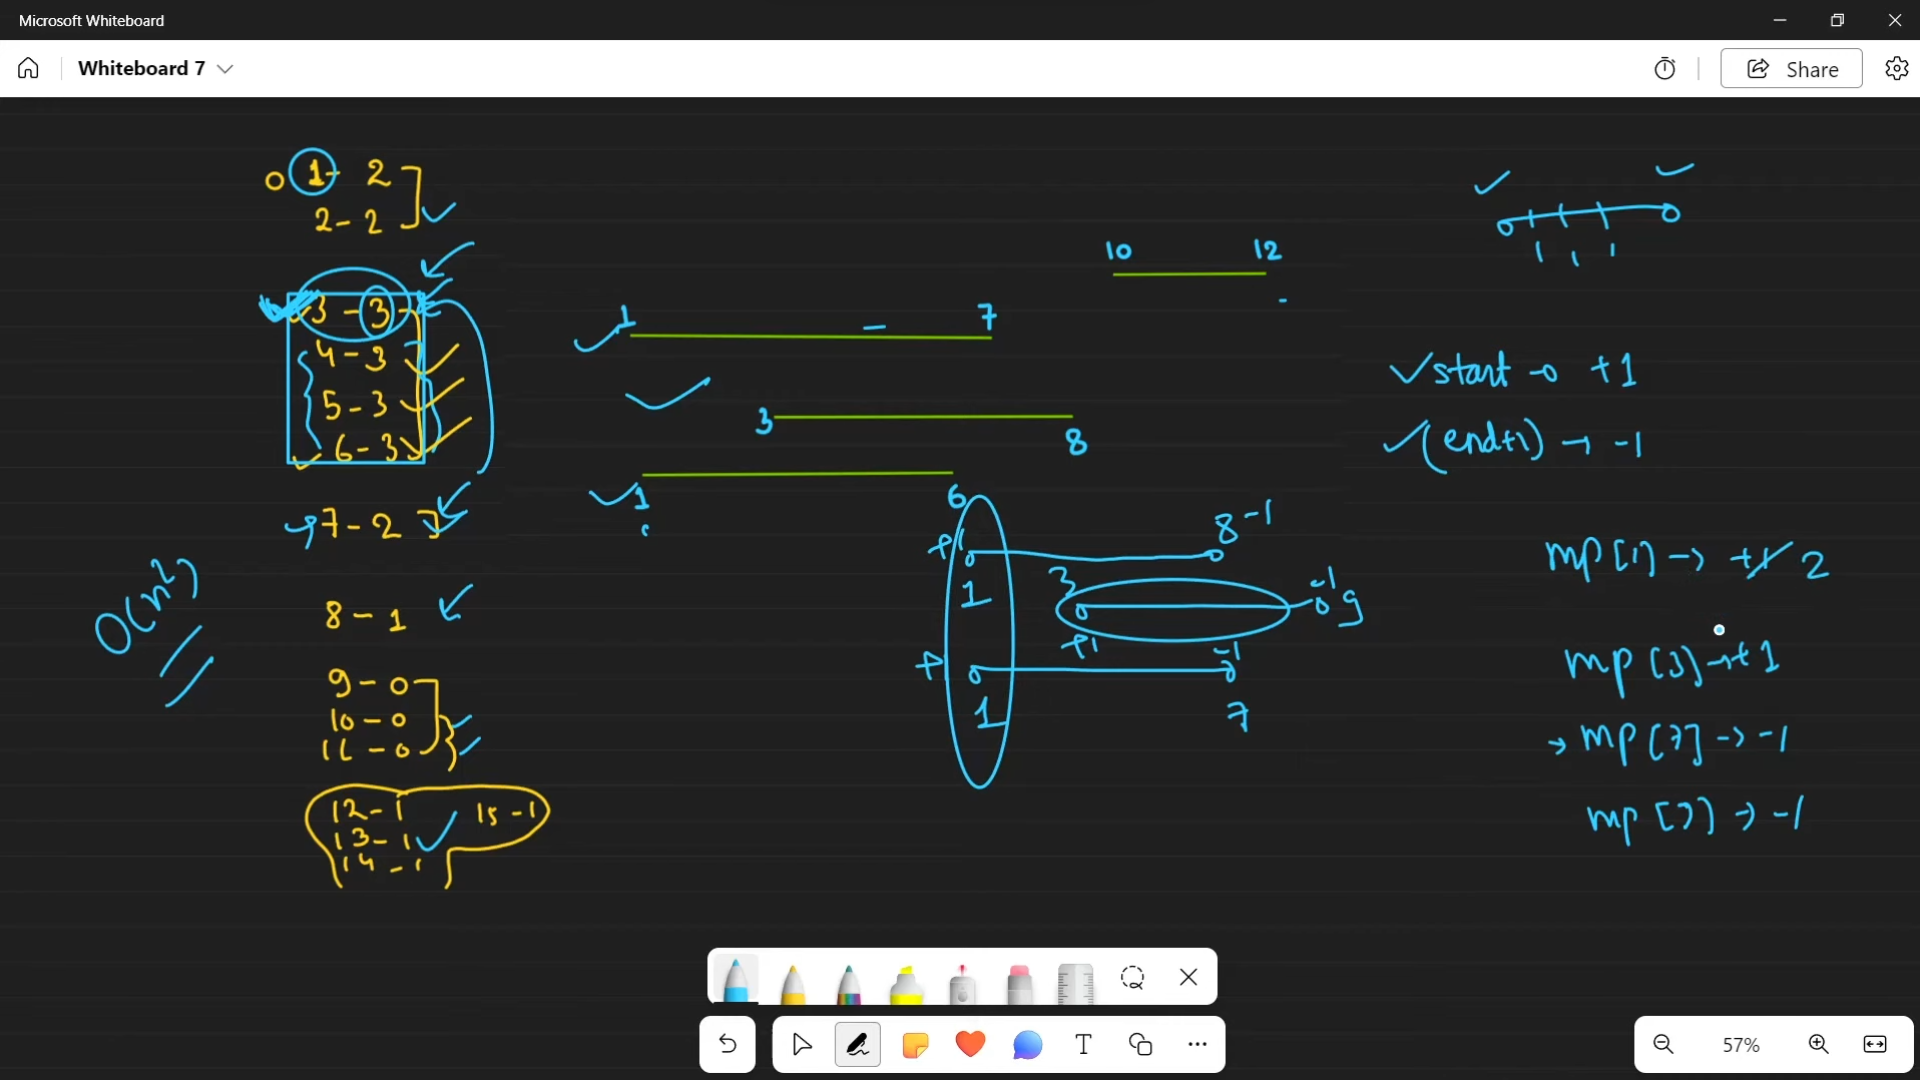 Microsoft Whiteboard
Whiteboard 7
Share
1 - 2
2 - 2
3 - 3
4 - 3
5 - 3
6 - 3
7 - 2
8 - 1
9 - 0
10 - 0
11 - 0
12 - 1
15 - 1
13 - 1
14 - 1
O(n²)
10 12
1 7
3 8
1 6
+1 8 -1
1
3 -1 9
+1
+1 -1
1 7
start → +1
(end+1) → -1
mp[1] → +1 2
mp[3] → +1
→ mp[7] → -1
mp[7] → -1
57%